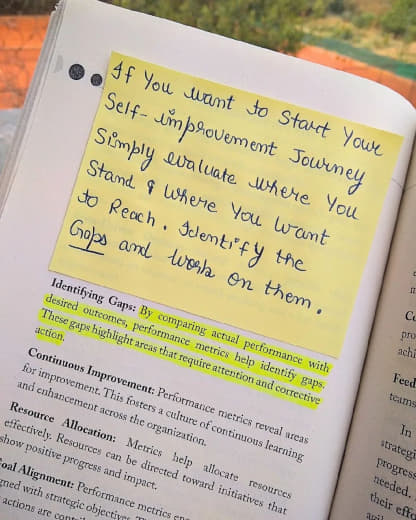 If You want to Start Your
Self-improvement Journey
Simply evaluate where You
Stand & where You want
to Reach. Identify the
Gaps and work on them.
Identifying Gaps: By comparing actual performance with
desired outcomes, performance metrics help identify gaps.
These gaps highlight areas that require attention and corrective
action.
Continuous Improvement: Performance metrics reveal areas
for improvement. This fosters a culture of continuous learning
and enhancement across the organization.
Resource Allocation: Metrics help allocate resources
effectively. Resources can be directed toward initiatives that
show positive progress and impact.
Alignment: Performance metrics
with strategic objectives.
actions are
In